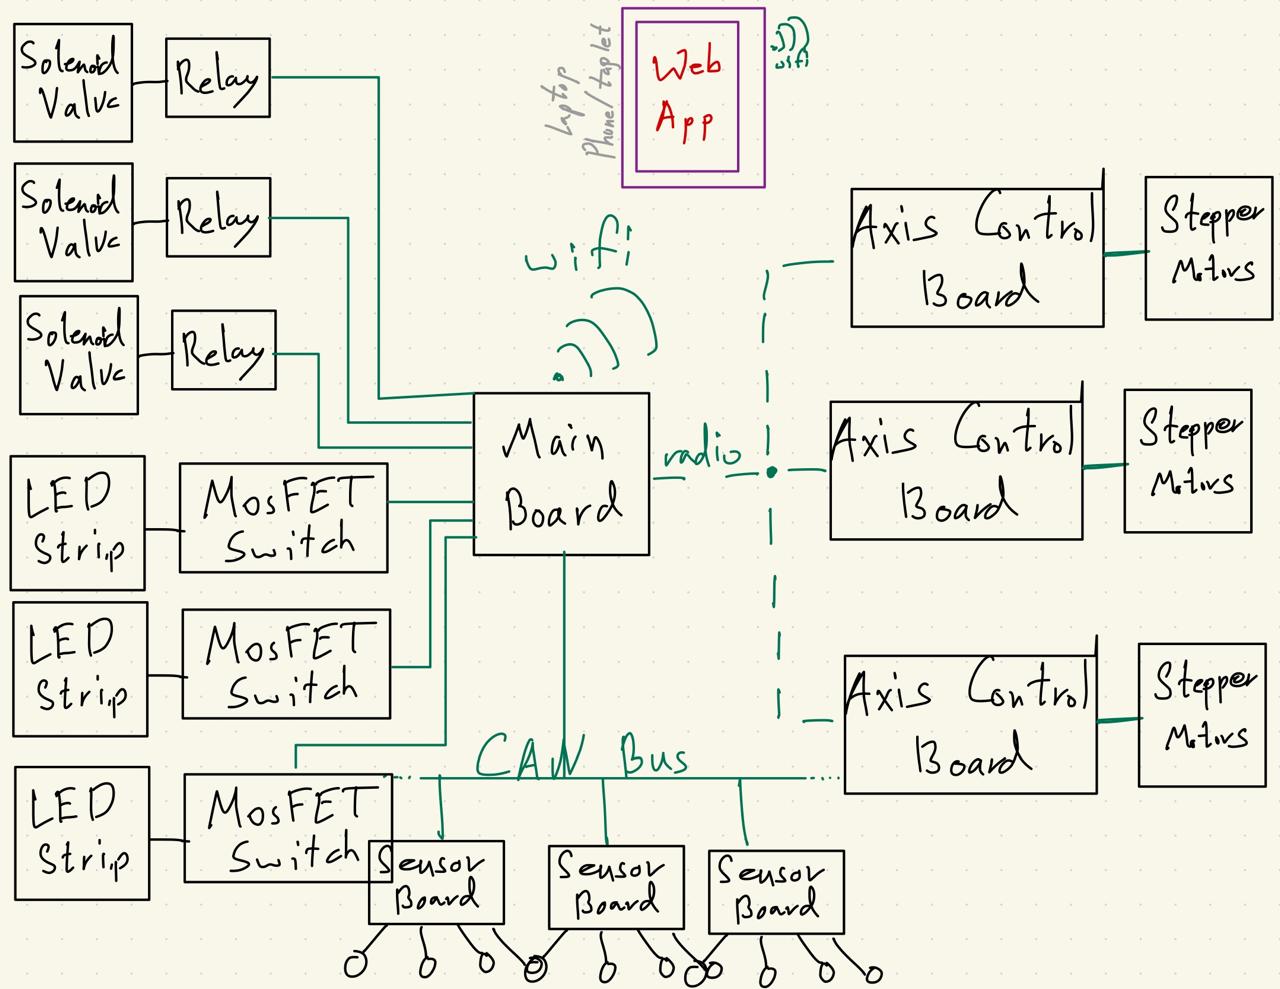 Solenoid
Valve
Relay
Solenoid
Valve
Relay
Solenoid
Valve
Relay
LED
Strip
MosFET
Switch
LED
Strip
MosFET
Switch
LED
Strip
MosFET
Switch
Laptop
Phone/taplet
Web
App
wifi
wifi
Main
Board
radio
CAN Bus
Sensor
Board
Sensor
Board
Sensor
Board
Axis Control
Board
Stepper
Motors
Axis Control
Board
Stepper
Motors
Axis Control
Board
Stepper
Motors